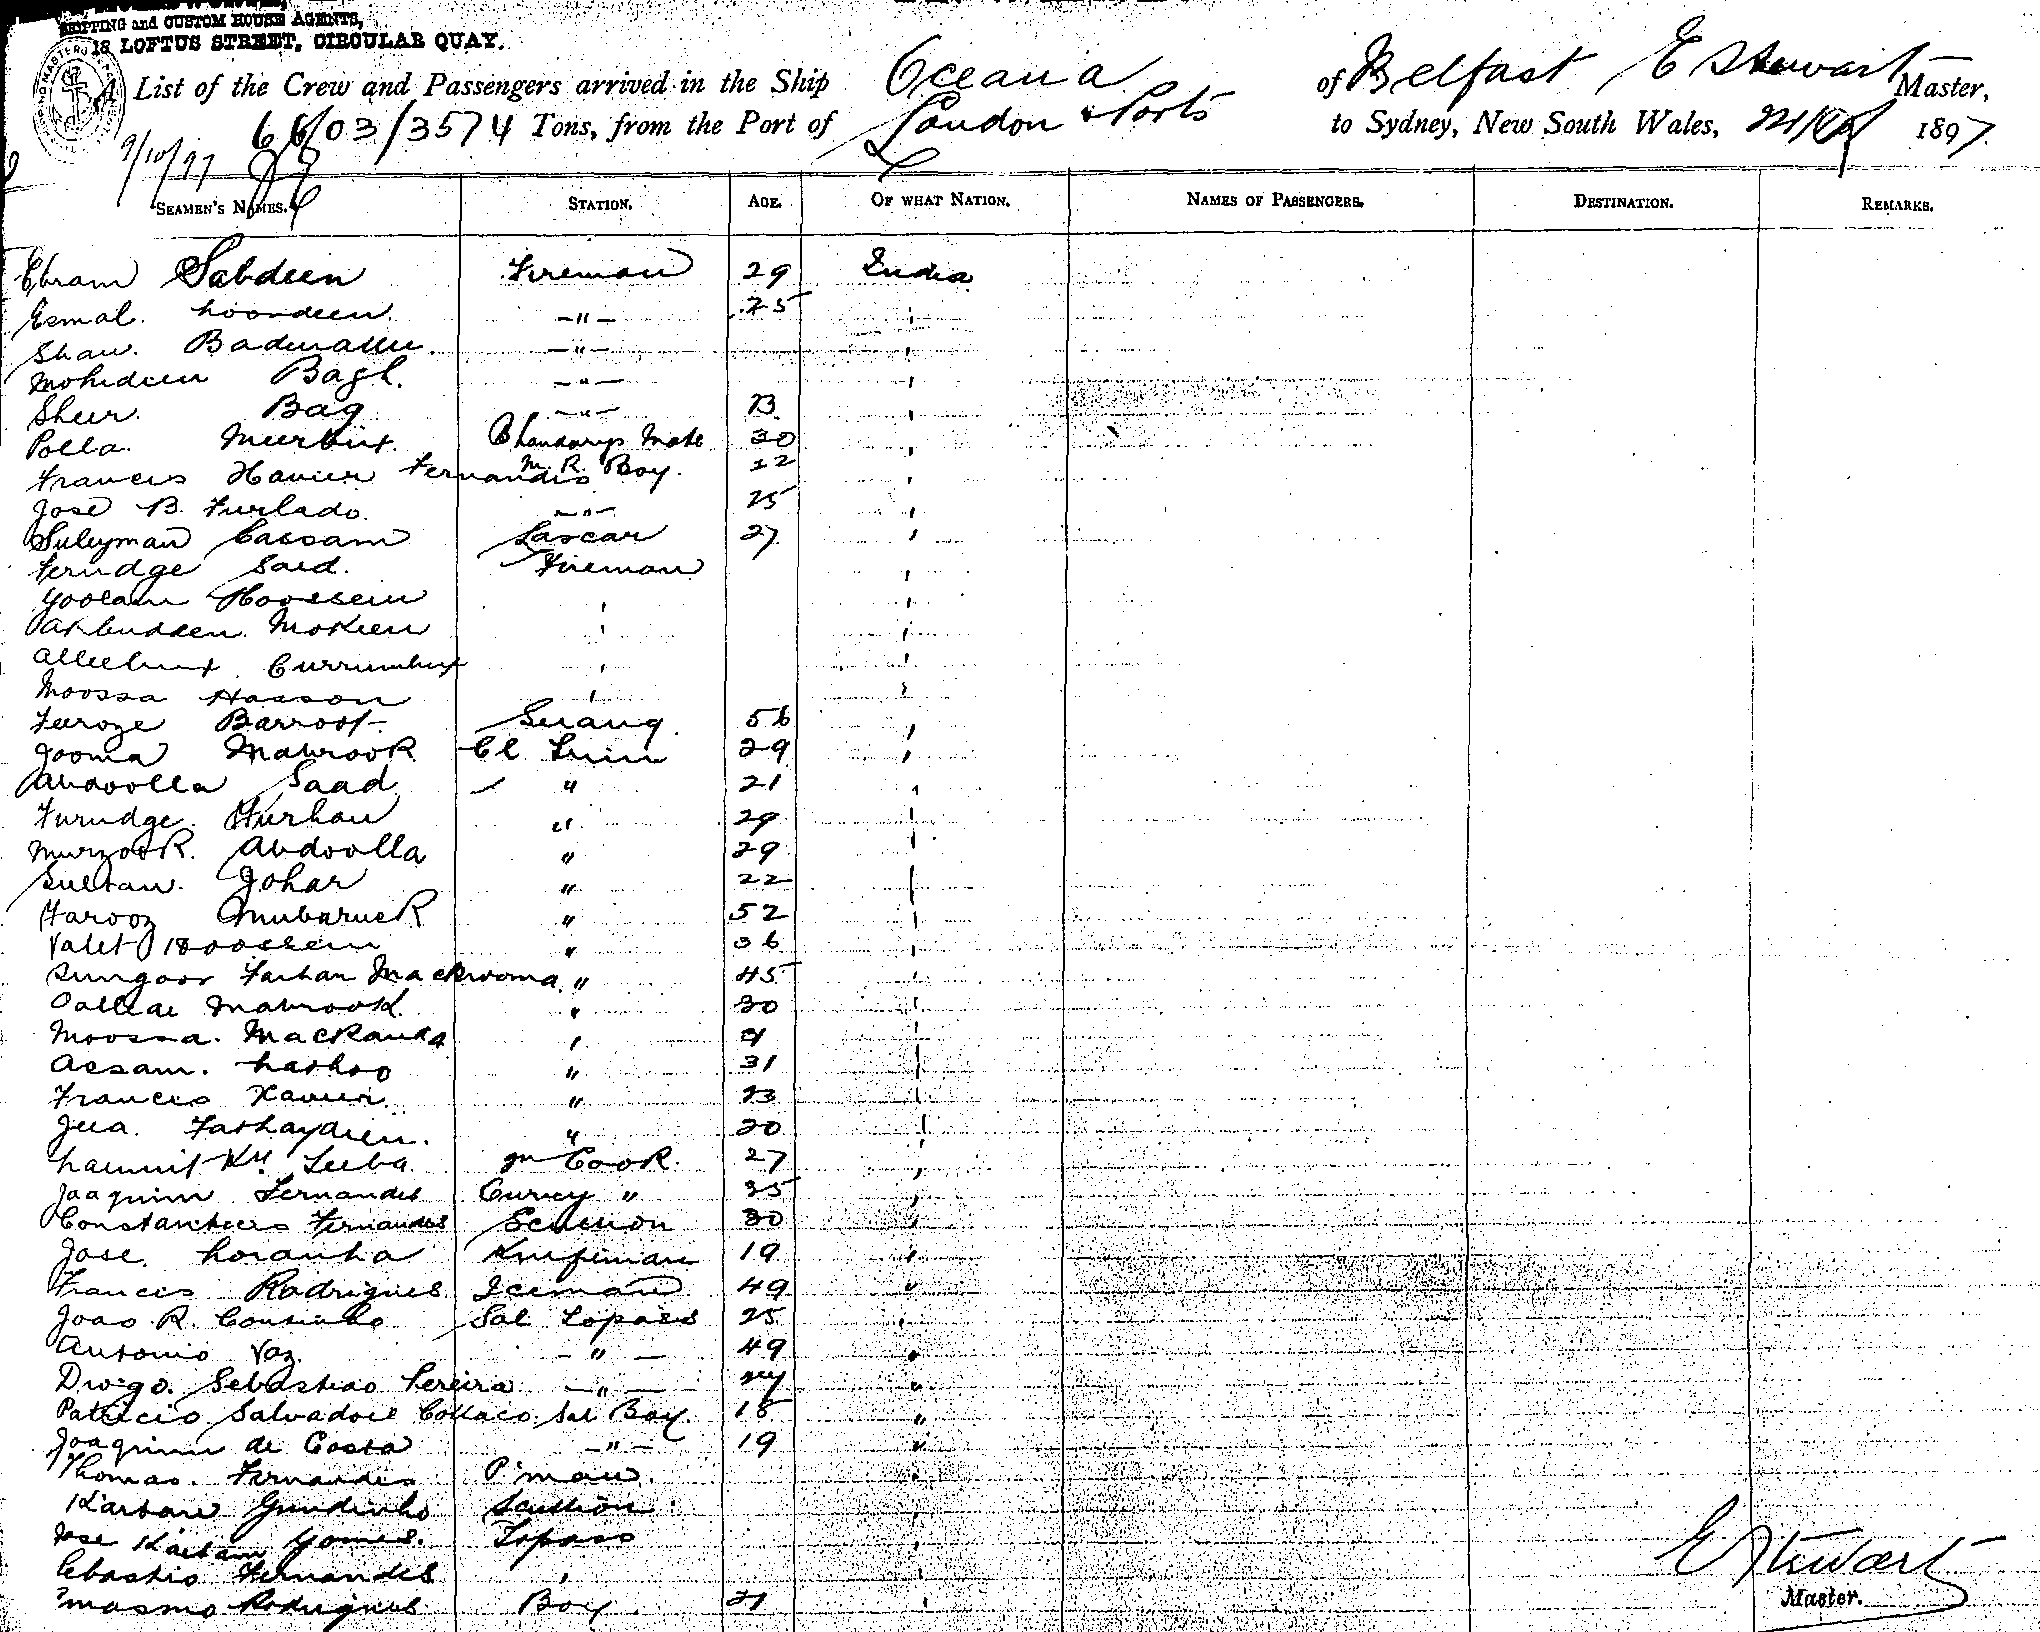 SHIPPING and CUSTOM HOUSE AGENTS,
18 LOFTUS STREET, CIRCULAR QUAY.
A List of the Crew and Passengers arrived in the Ship Oceana of Belfast E Stewart Master,
6603/3574 Tons, from the Port of London & Ports to Sydney, New South Wales, 1897.
9/10/97
SEAMEN'S NAMES. STATION. AGE. OF WHAT NATION. NAMES OF PASSENGERS. DESTINATION. REMARKS.
Ebram Sabdeen Fireman 29 India
Esmal. -"- 25 "
Shaw. -"- "
Mohideen Bagl. -"- "
Sheer. Bag -"- "
Polla. Meerbux. Bhandarys Mate 30 "
Francis Xavier Fernandis M. R. Boy. 22 "
José B. Furlado. -"- 25 "
Suleyman Cassam Lascar 27 "
Ferudge Said. Fireman "
Goolam Hoossein " "
Mokeen " "
Alleebux Currumbux " "
Moossa Hasson " "
Feroze Barroot Serang 56 "
Jooma Mabrook Cl Trim 29 "
Abdoolla Saad " 21 "
Furudge. Furhan " 29 "
Murzook. Abdoolla " 29 "
Sultan. Johar " 22 "
Farooz Mubaruck " 52 "
Valet Hoossein " 36 "
Sungoor Farhan Mackwoma " 45 "
Mabrook " 30 "
Moossa. Mackanda " "
Assam. " 31 "
Francis Xavier. " 23 "
" 20 "
M Cook. 27 "
Joaquim Fernandes Curry " 35 "
Fernandes Scullion 30 "
José. Noranha Knifeman 19 "
Francis Rodrigues Iceman 49 "
Joao R. Coutinho Sal Topass 25 "
Antonio Vaz. -"- 49 "
Diogo. Sebastiao Pereira -"- "
Patricio Salvadore Collaco Sal Boy. 18 "
Joaquim de Costa -"- 19 "
Thomas. Fernandes P'man. "
Kaitan Gundinho Scullion "
Jose Kaitan Gomes. Topass "
Sebastio Fernandes " "
Rodrigues Boy 21 "
E Stewart
Master.